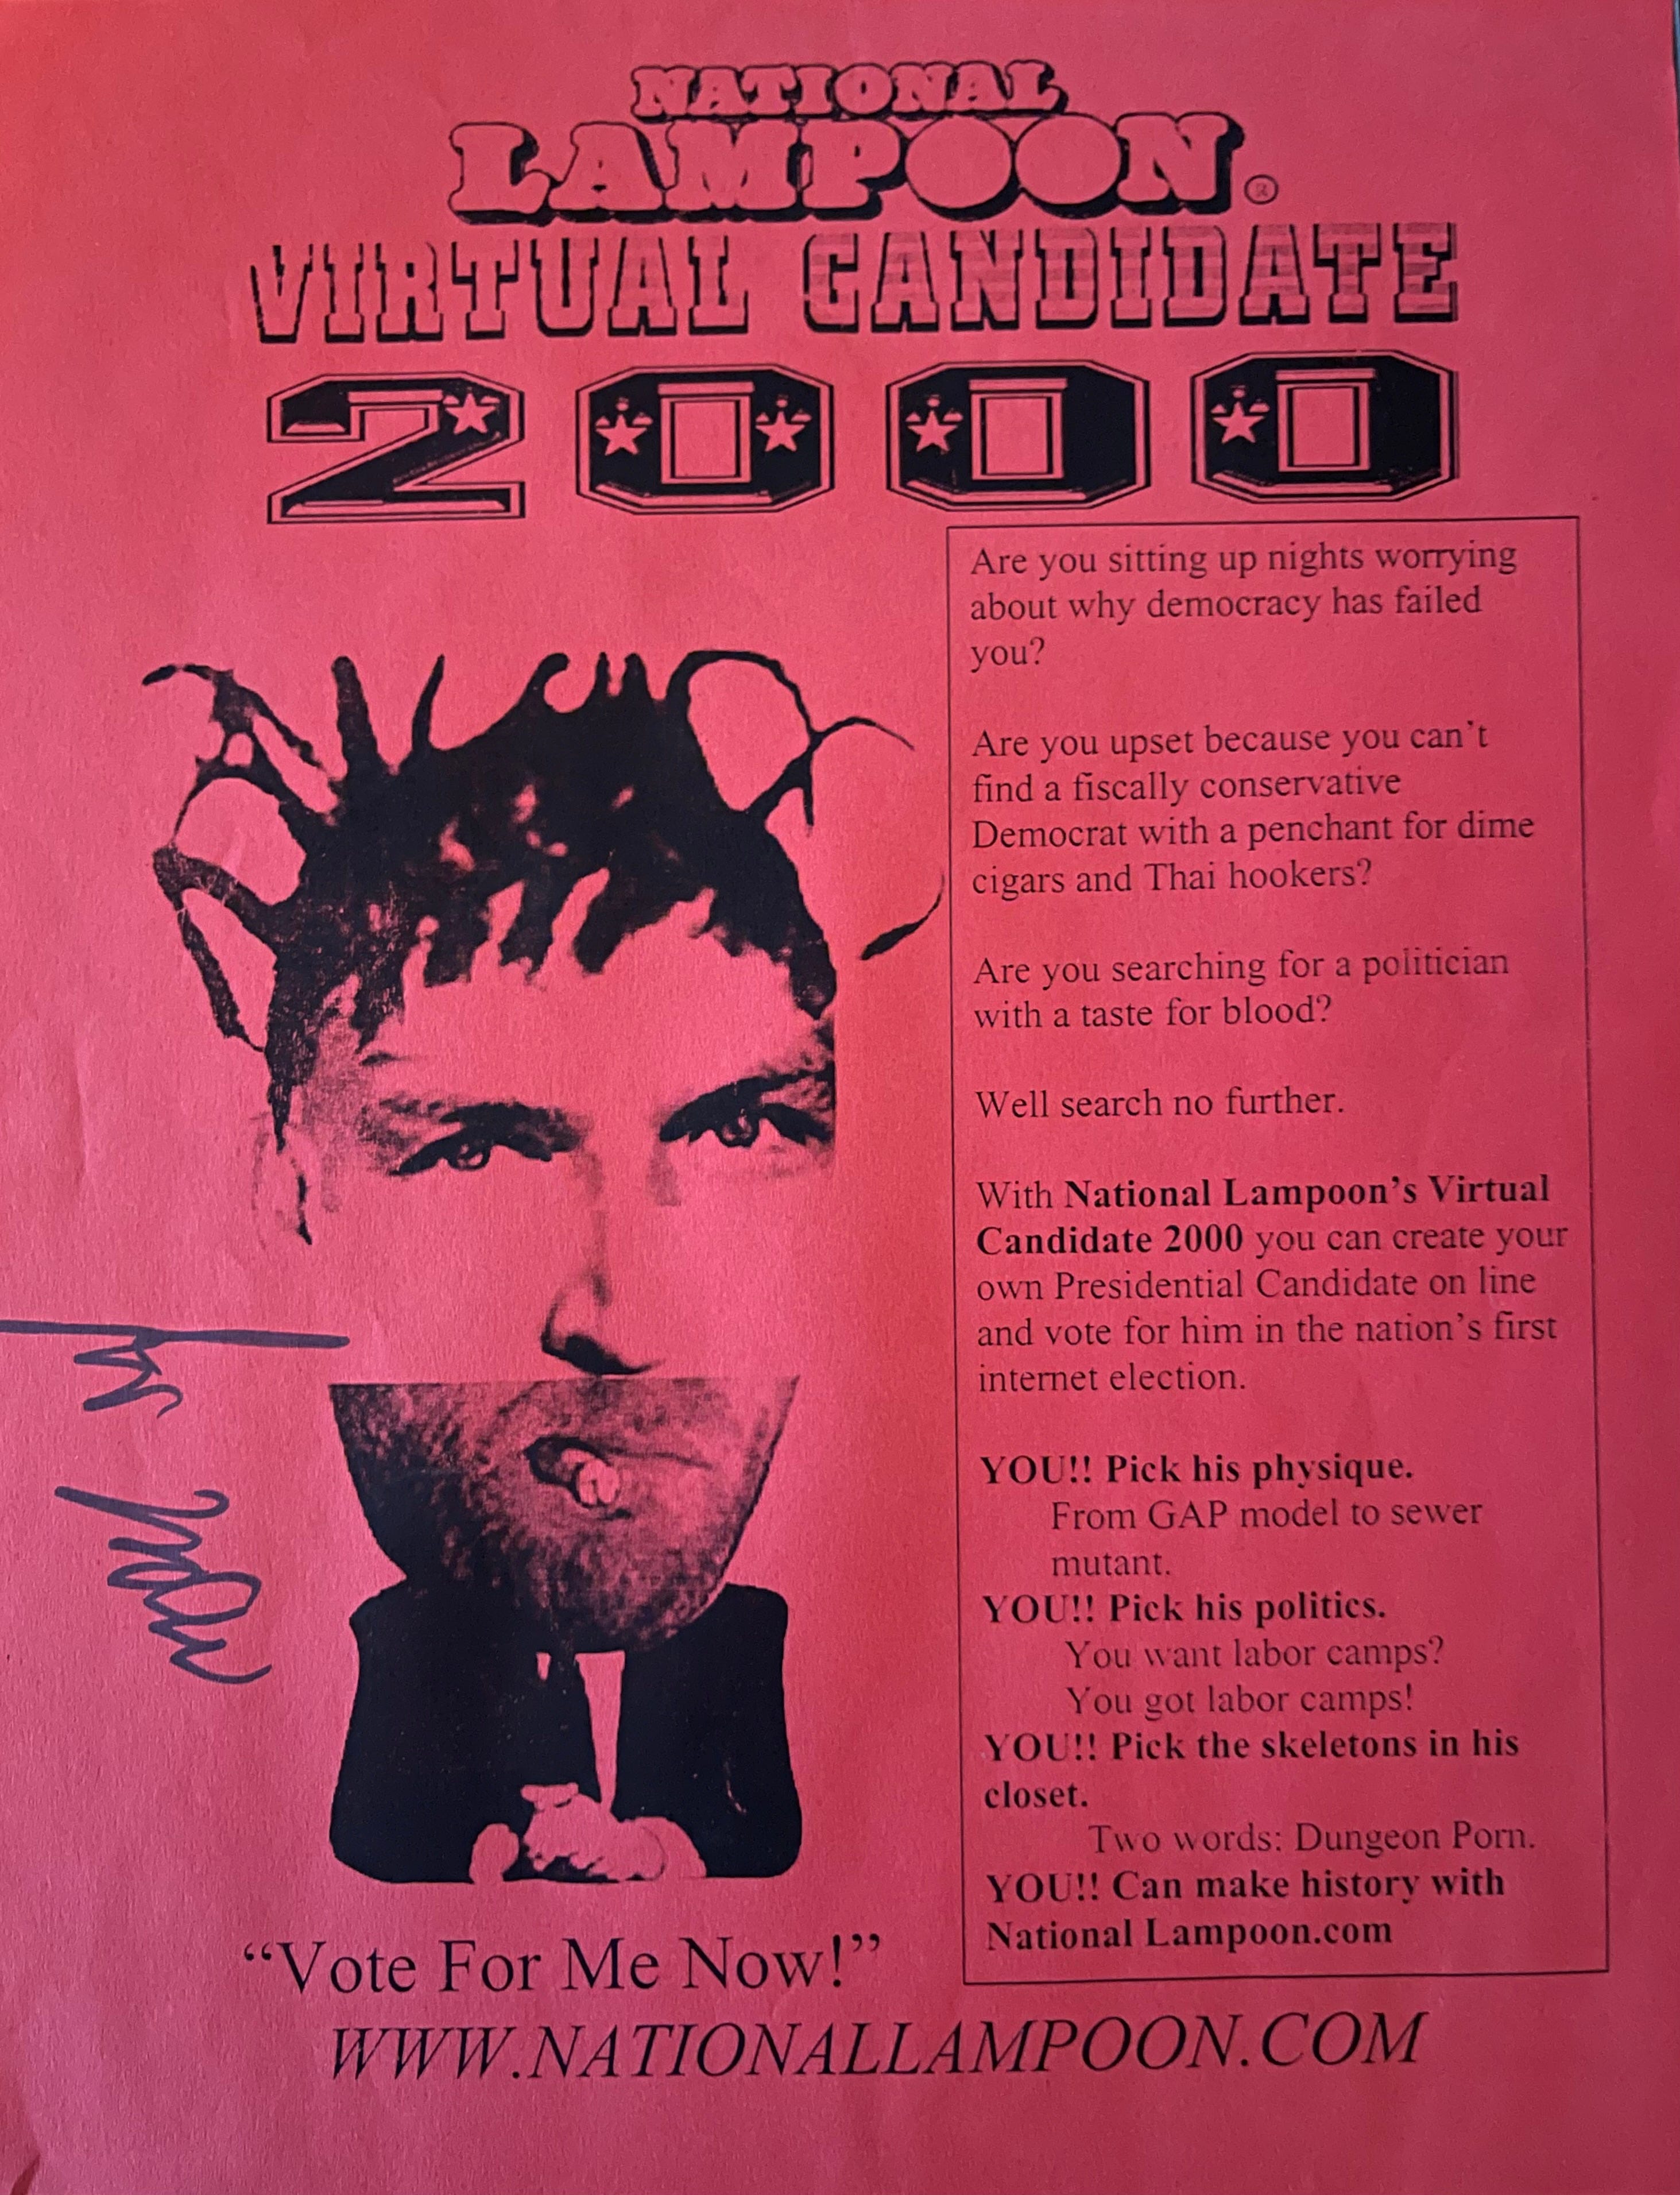 NATIONAL
LAMPOON®
VIRTUAL CANDIDATE
2000
Are you sitting up nights worrying
about why democracy has failed
you?
Are you upset because you can't
find a fiscally conservative
Democrat with a penchant for dime
cigars and Thai hookers?
Are you searching for a politician
with a taste for blood?
Well search no further.
With National Lampoon's Virtual
Candidate 2000 you can create your
own Presidential Candidate on line
and vote for him in the nation's first
internet election.
YOU!! Pick his physique.
From GAP model to sewer
mutant.
YOU!! Pick his politics.
You want labor camps?
You got labor camps!
YOU!! Pick the skeletons in his
closet.
Two words: Dungeon Porn.
YOU!! Can make history with
National Lampoon.com
“Vote For Me Now!”
WWW.NATIONALLAMPOON.COM